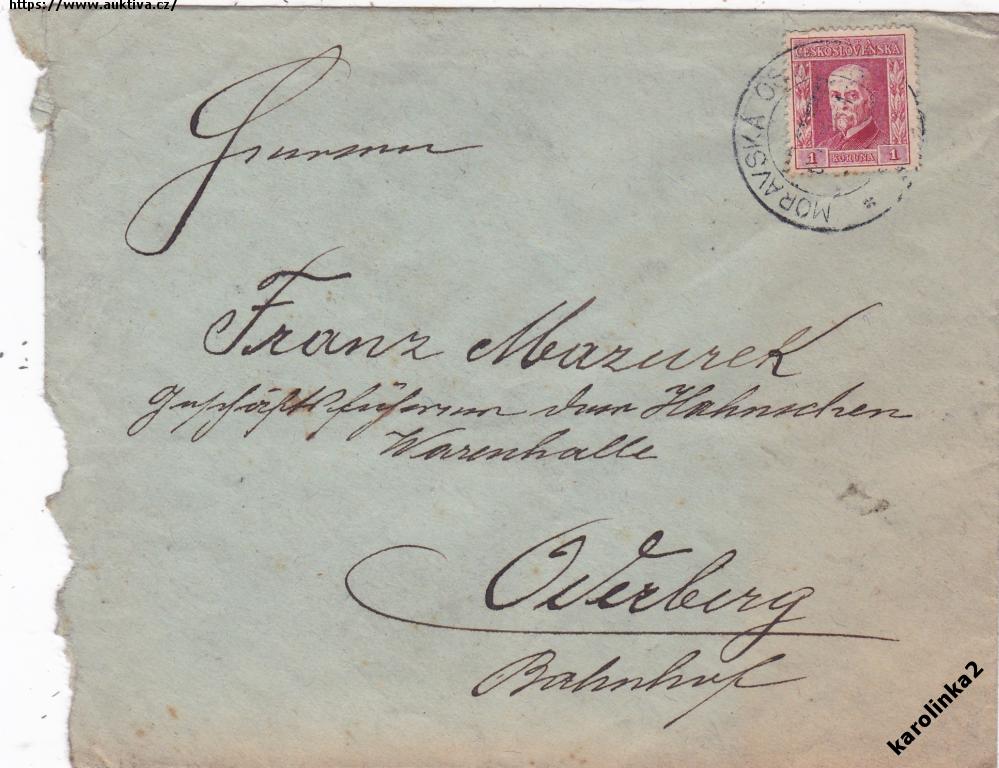 https://www.auktiva.cz/
ČESKOSLOVENSKÁ
1 KORUNA 1
MORAVSKÁ OS
Franz Mazurek
Geschäftsführer der Hahnschen
Warenhalle
Oderberg
Bahnhof
karolinka2